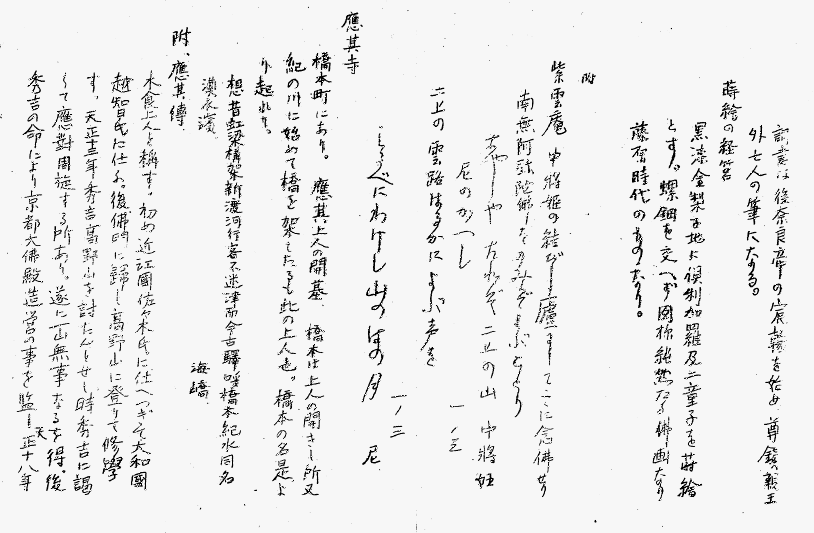 詞書は後奈良帝の宸翰を始め尊鎮親王
外七人の筆になる。
蒔絵の経筥
黒漆金梨子地に倶利加羅及二童子を蒔繪
とす。螺鈿を交へず図様純然たる佛画なり
藤原時代のものなり。
附
紫雲庵 中將姫の結びし廬にしてこに念佛せり
南無阿弥陀佛
あやしやたれぞ二上の山 中將姫
尼のかへし 一ノ三
二上の雲路はるかによぶ声を
しるべにわけし山のはの月 尼
一ノ三
應其寺
橋本町にあり。應其上人の開基。橋本は上人の開きし所又
紀の川に始めて橋を架したるも此の上人也。橋本の名是よ
り起れり。
想昔虹梁構架新渡河行客不迷津而今古驛唯橋本紀水同名
濯衣濱 海嶠
附、應其傳、
木食上人と稱す。初め近江國佐々木氏に仕へつぎて大和國
越知氏に仕ふ。後佛門に歸し高野山に登りて修學
す。天正十三年秀吉高野山を討たんとせし時秀吉に謁
して應對周旋する所あり。遂に一山無事なるを得。後
秀吉の命により京都大佛殿造営の事を監し天正十八年